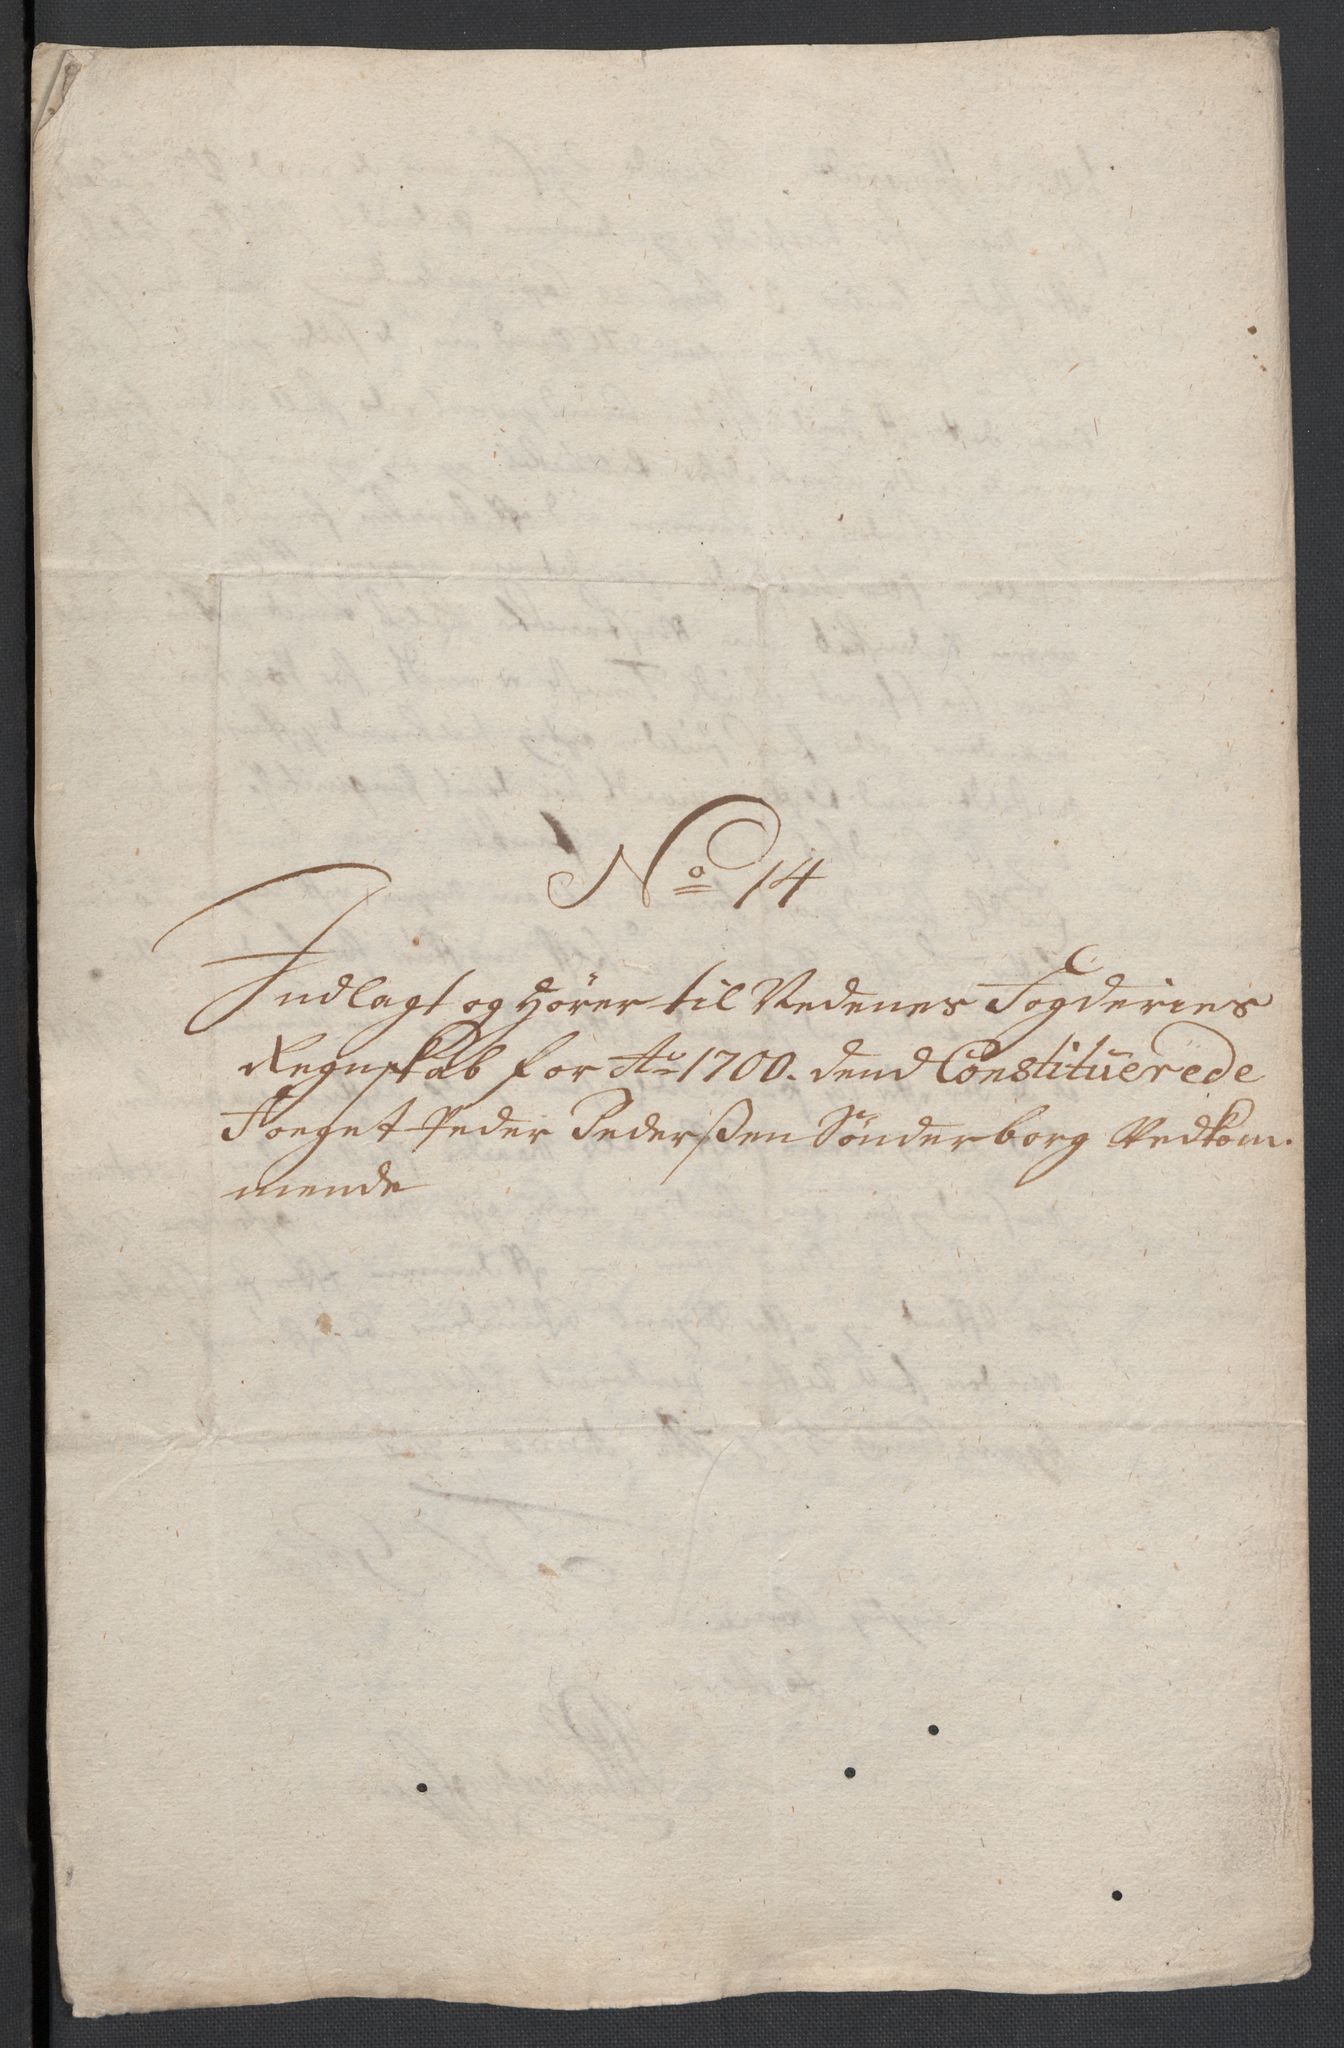 No 14
Indlagt og Hörer til Nedenes Fogderies
Regnskab for Ao 1700. dend Constituerede
Foeget Peder Pederßen Sönderborg Vedkom.
mende